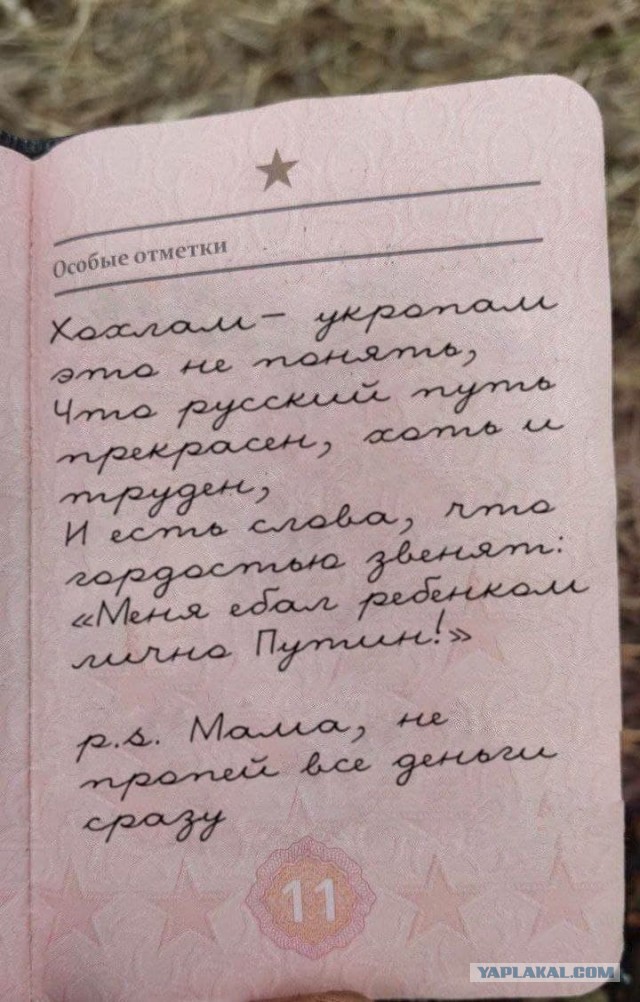 Особые отметки
Хохлам — укропам
это не понять,
Что русский путь
прекрасен, хоть и
труден,
И есть слова, что
гордостью звенят:
«Меня ебал ребенком
лично Путин!»
p.s. Мама, не
пропей все деньги
сразу
11
YAPLAKAL.COM